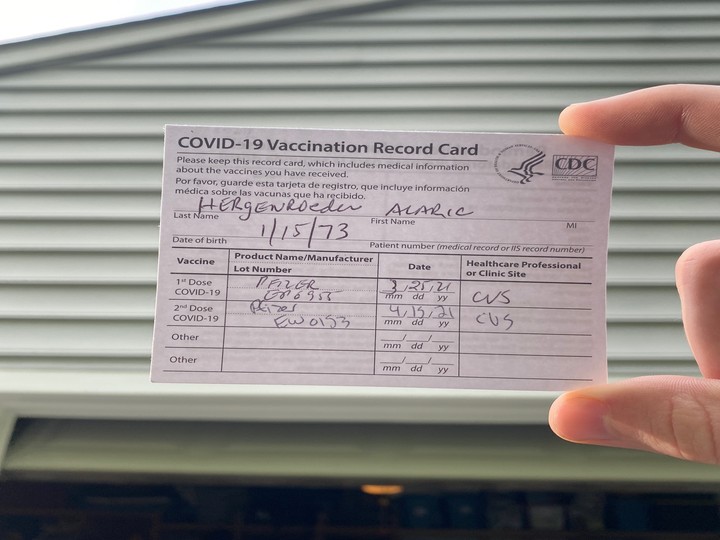 COVID-19 Vaccination Record Card
CDC
Please keep this record card, which includes medical information
about the vaccines you have received.
Por favor, guarde esta tarjeta de registro, que incluye información
médica sobre las vacunas que ha recibido.
HERgENROeder ALARIC
Last Name First Name MI
1/15/73
Date of birth Patient number (medical record or IIS record number)
Vaccine Product Name/Manufacturer Date Healthcare Professional
Lot Number or Clinic Site
1st Dose PFIZER 3,25,21 CVS
COVID-19 mm dd yy
2nd Dose Pfizer 4,15,21 CVS
COVID-19 EW0153 mm dd yy
Other / /
mm dd yy
Other / /
mm dd yy